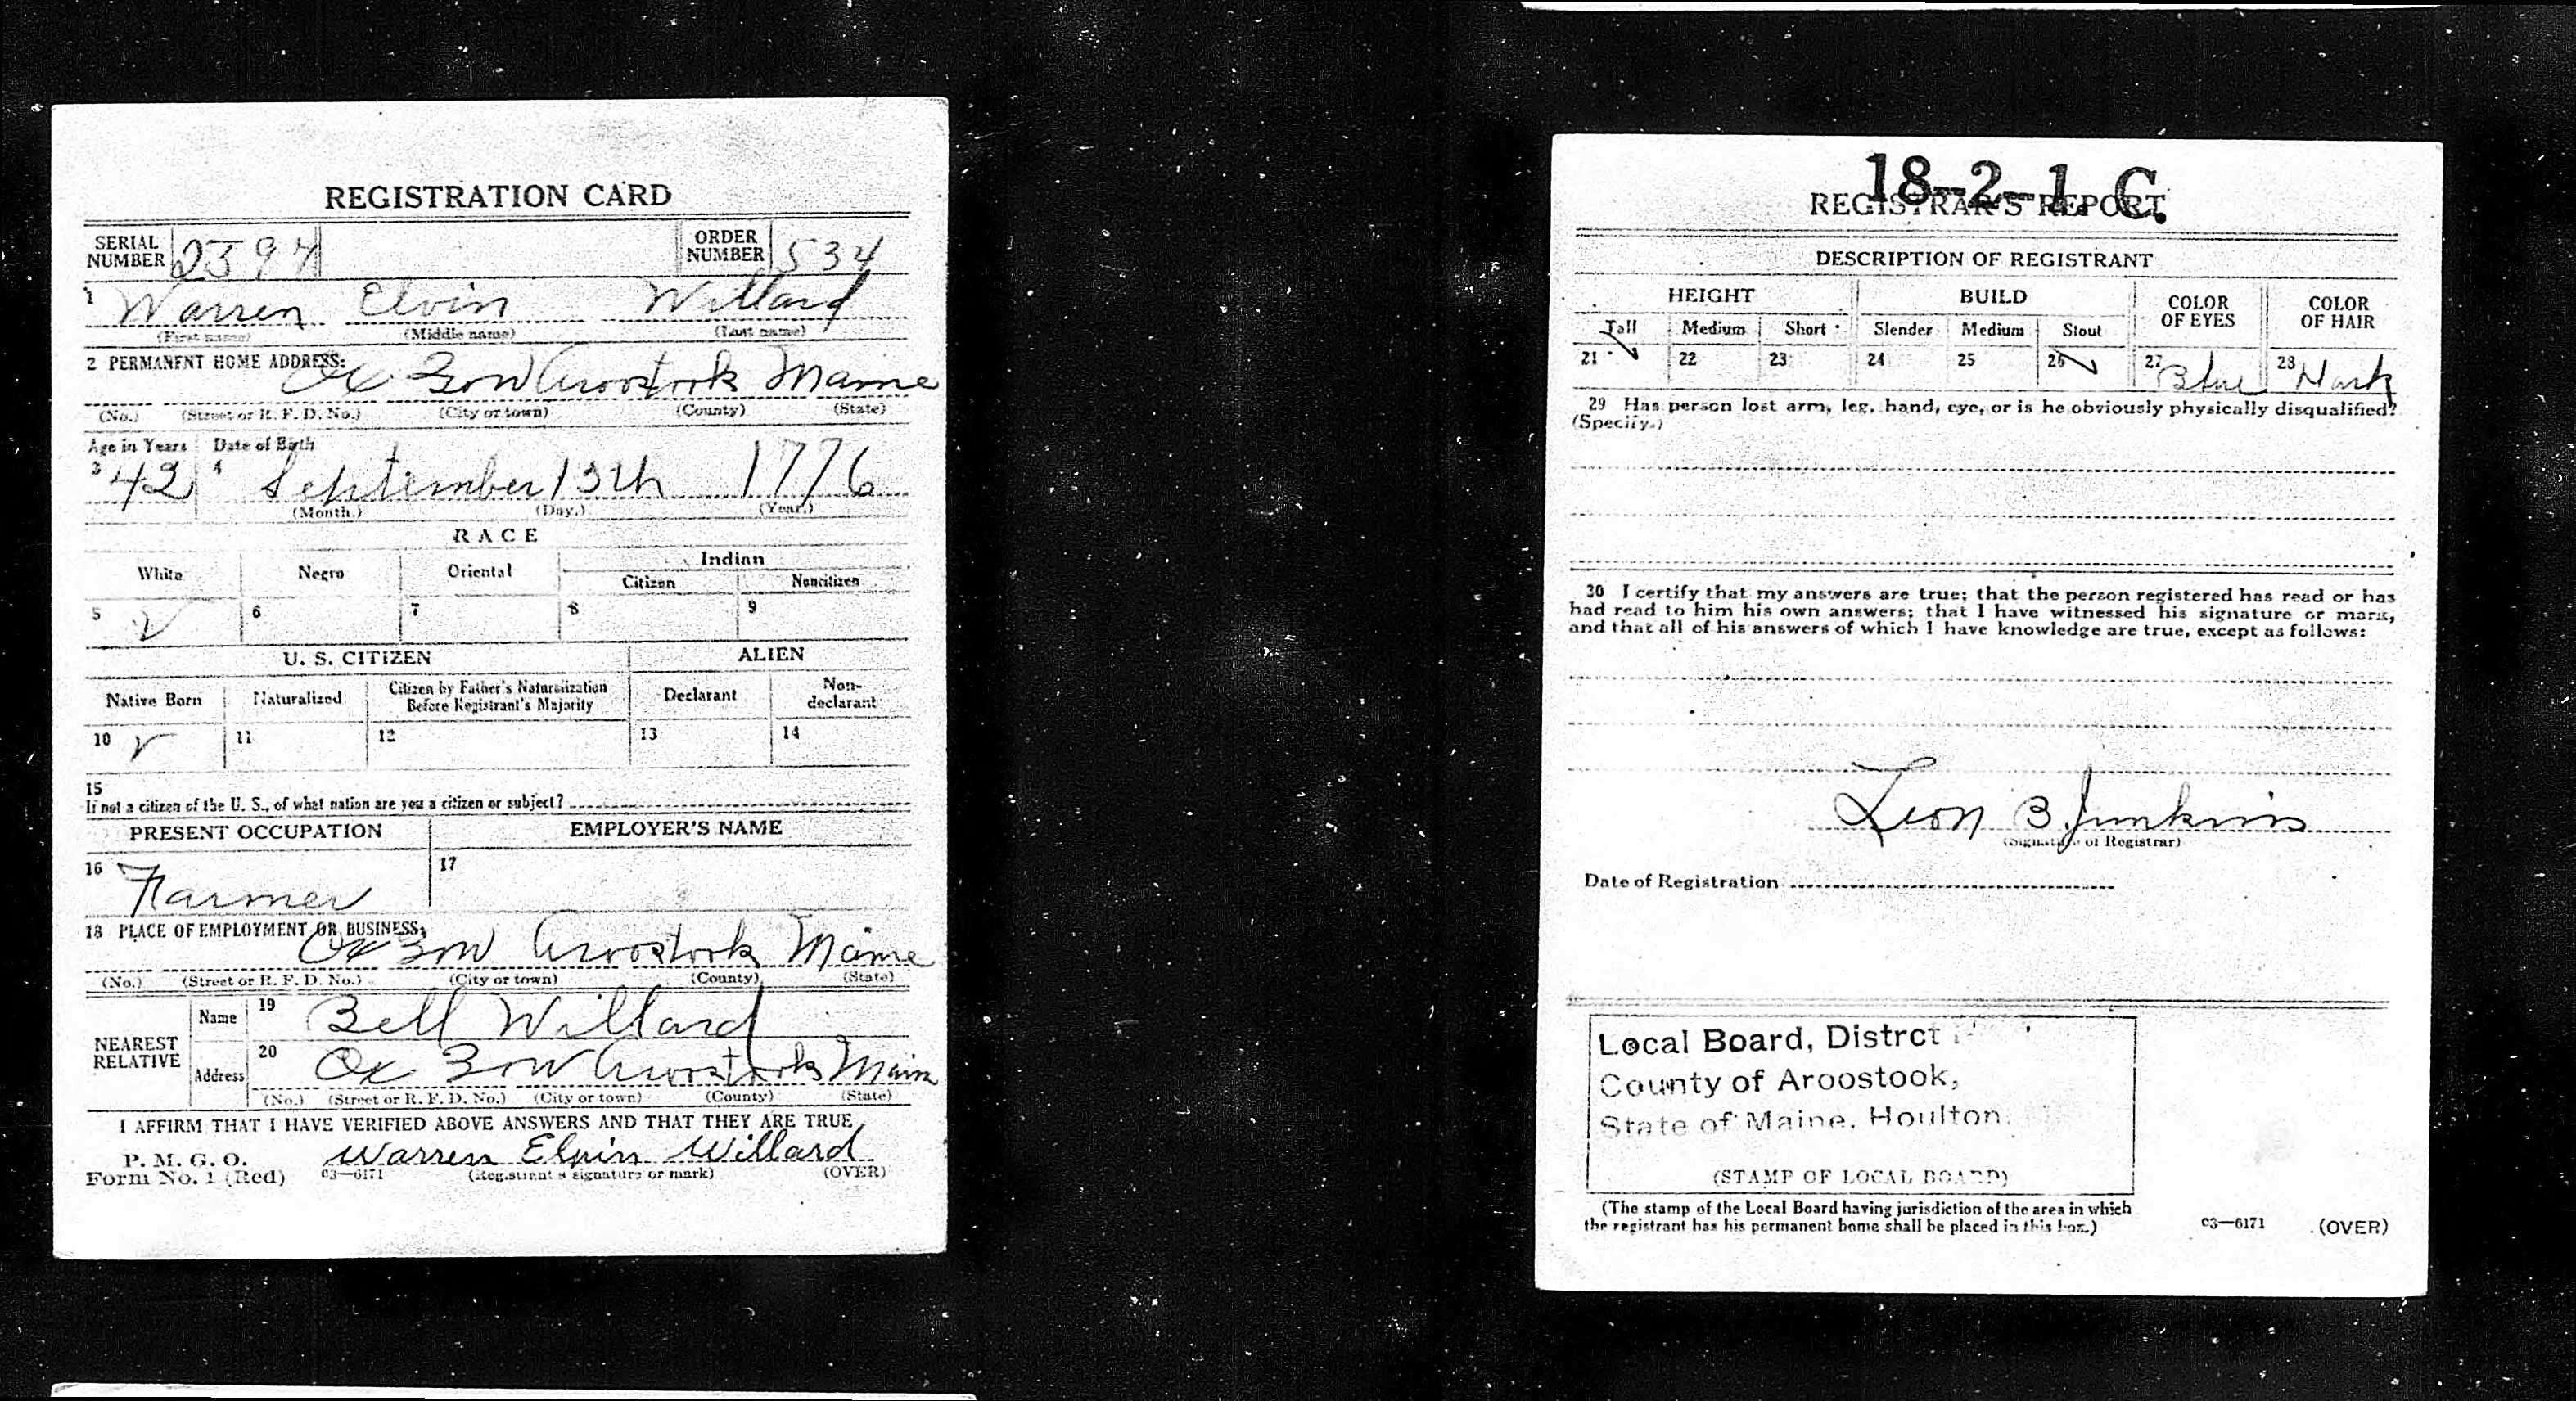 REGISTRATION CARD
SERIAL NUMBER 2594 ORDER NUMBER 534
1 Warren Elvin Willard
(First name) (Middle name) (Last name)
2 PERMANENT HOME ADDRESS:
Ox Bow Aroostook Maine
(No.) (Street or R. F. D. No.) (City or town) (County) (State)
Age in Years Date of Birth
3 42 4 September 13th 1776
(Month.) (Day.) (Year.)
RACE
White Negro Oriental Indian
Citizen Noncitizen
5 ✓ 6 7 8 9
U. S. CITIZEN ALIEN
Native Born Naturalized Citizen by Father's Naturalization Before Registrant's Majority Declarant Non-declarant
10 ✓ 11 12 13 14
15
If not a citizen of the U. S., of what nation are you a citizen or subject?
PRESENT OCCUPATION EMPLOYER'S NAME
16 Farmer 17
18 PLACE OF EMPLOYMENT OR BUSINESS:
Ox Bow Aroostook Maine
(No.) (Street or R. F. D. No.) (City or town) (County) (State)
NEAREST RELATIVE
Name 19 Bell Willard
Address 20 Ox Bow Aroostook Maine
(No.) (Street or R. F. D. No.) (City or town) (County) (State)
I AFFIRM THAT I HAVE VERIFIED ABOVE ANSWERS AND THAT THEY ARE TRUE
P. M. G. O.
Form No. 1 (Red) c3—6171 Warren Elvin Willard
(Registrant's signature or mark) (OVER)
18-2-1. C.
REGISTRAR'S REPORT
DESCRIPTION OF REGISTRANT
HEIGHT BUILD COLOR OF EYES COLOR OF HAIR
Tall Medium Short Slender Medium Stout
21 ✓ 22 23 24 25 26 ✓ 27 Blue 28 Dark
29 Has person lost arm, leg, hand, eye, or is he obviously physically disqualified?
(Specify.)
30 I certify that my answers are true; that the person registered has read or has
had read to him his own answers; that I have witnessed his signature or mark,
and that all of his answers of which I have knowledge are true, except as follows:
Leon B. Junkins
(Signature of Registrar)
Date of Registration
Local Board, Distrct
County of Aroostook,
State of Maine. Houlton.
(STAMP OF LOCAL BOARD)
(The stamp of the Local Board having jurisdiction of the area in which
the registrant has his permanent home shall be placed in this box.)
c3—6171 (OVER)